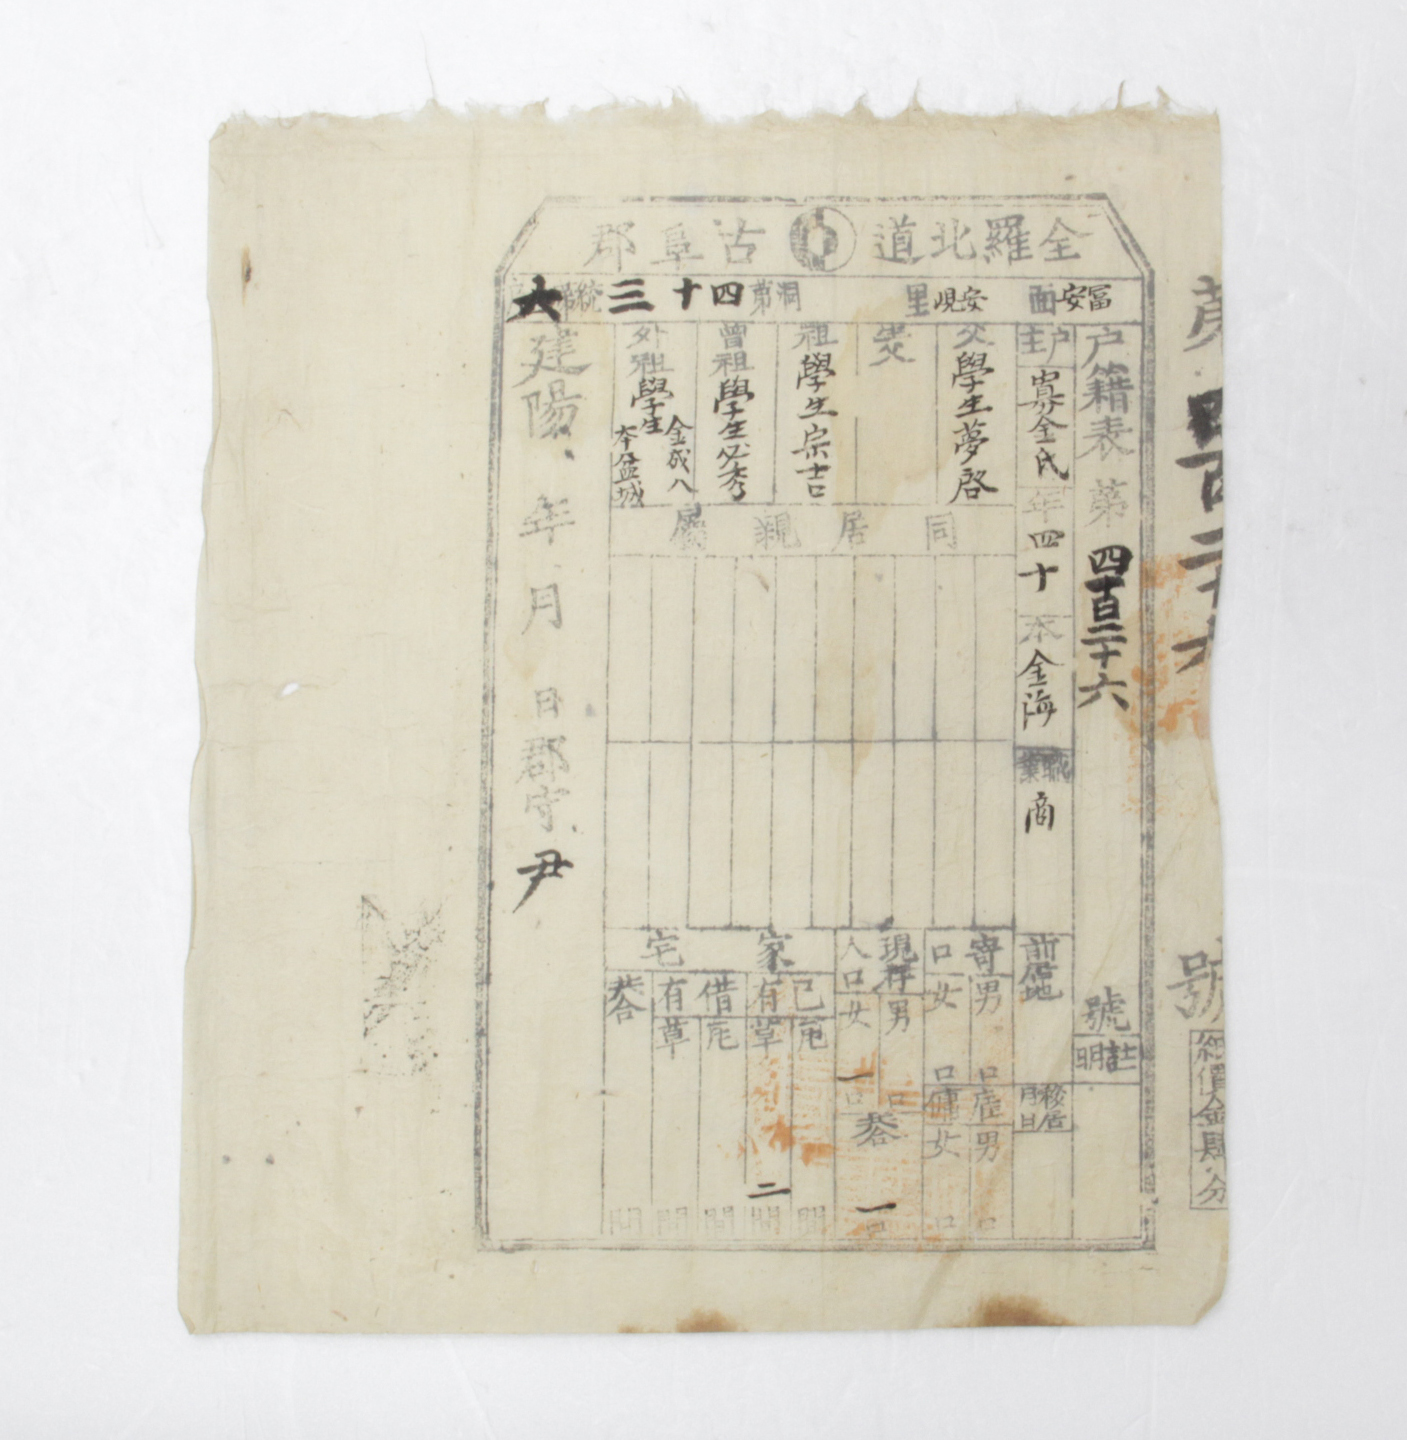 全羅北道 古阜郡
富安面 安峴里 洞第四十三統第六
戶籍表 第四百二十六號
註明
戶主 寡金氏 年四十 本金海 職業 商
前居地
移居月日
父 學生夢啓
生父
祖 學生宗吉
曾祖 學生必秀
外祖 學生金成八 本盆城
同居親屬
寄口 男口 女口
雇傭 男口 女口
現存人口 男口 女一口
共合一口
家宅
己有 瓦間 草二間
借有 瓦間 草間
共合間
建陽 年 月 日 郡守 尹
四百二十六
號
紙價金肆分